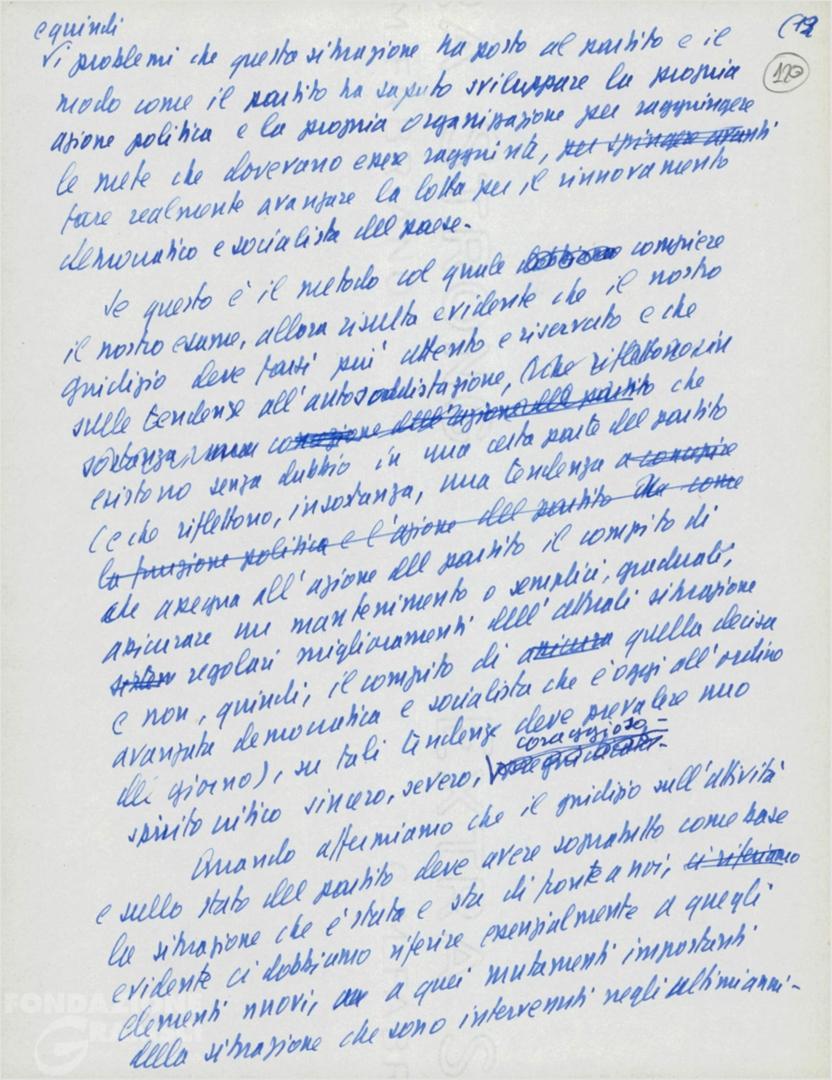 e quindi
i problemi che questa situazione ha posto al partito e il
modo come il partito ha saputo sviluppare la propria
azione politica e la propria organizzazione per raggiungere
le mete che dovevano essere raggiunte, per spingere avanti
fare realmente avanzare la lotta per il rinnovamento
democratico e socialista del paese.
Se questo è il metodo col quale dobbiamo compiere
il nostro esame, allora risulta evidente che il nostro
giudizio deve farsi più attento e riservato e che
sulle tendenze all'autosoddisfazione, (che riflettono in
sostanza, una concezione dell'azione del partito che
esistono senza dubbio in una certa parte del partito
(e che riflettono, in sostanza, una tendenza a concepire
la funzione politica e l'azione del partito come
che assegna all'azione del partito il compito di
assicurare un mantenimento o semplici, graduali,
regolari miglioramenti dell'attuale situazione
e non, quindi, il compito di assicura quella decisa
avanzata democratica e socialista che è oggi all'ordine
del giorno), su tali tendenze deve prevalere uno
coraggioso.
spirito critico sincero, severo,
Quando affermiamo che il giudizio sull'attività
e sullo stato del partito deve avere sopratutto come base
la situazione che è stata e sta di fronte a noi, ci riferiamo
evidente ci dobbiamo riferire essenzialmente a quegli
elementi nuovi, a quei mutamenti importanti
della situazione che sono intervenuti negli ultimi anni.
(19
120
FONDAZIONE
GRAMSCI